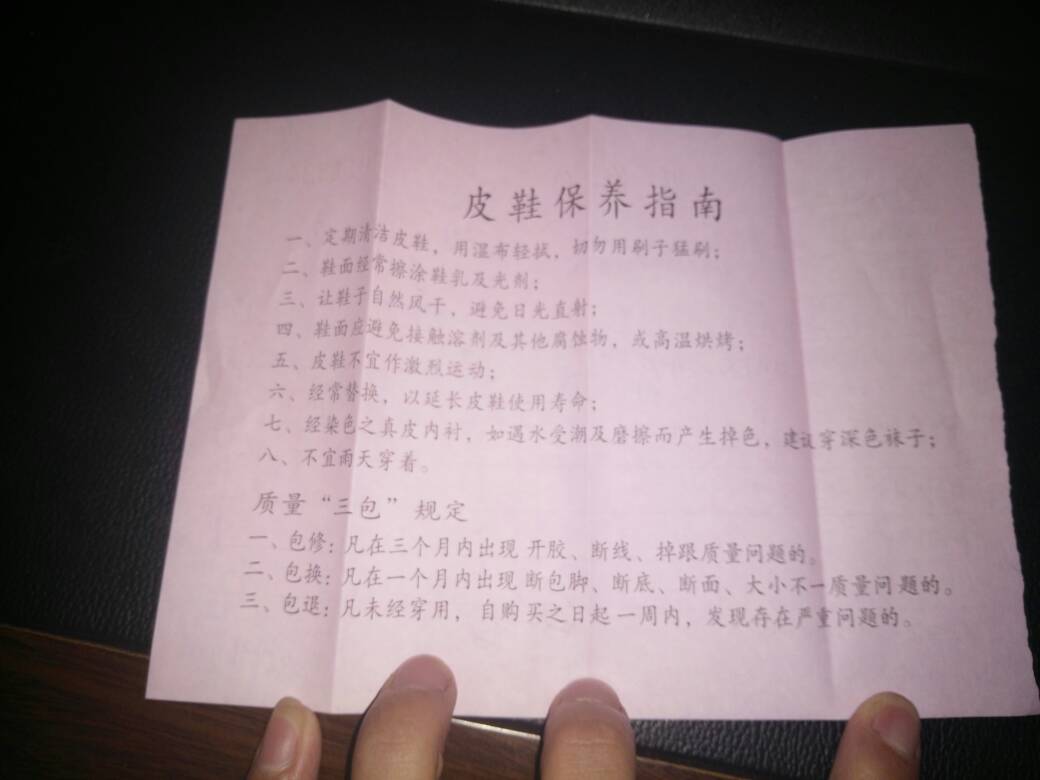 皮鞋保养指南
一、定期清洁皮鞋，用湿布轻拭，切勿用刷子猛刷；
二、鞋面经常擦涂鞋乳及光剂；
三、让鞋子自然风干，避免日光直射；
四、鞋面应避免接触溶剂及其他腐蚀物，或高温烘烤；
五、皮鞋不宜作激烈运动；
六、经常替换，以延长皮鞋使用寿命；
七、经染色之真皮内衬，如遇水受潮及磨擦而产生掉色，建议穿深色袜子；
八、不宜雨天穿着。
质量“三包”规定
一、包修：凡在三个月内出现 开胶、断线、掉跟质量问题的。
二、包换：凡在一个月内出现 断包脚、断底、断面、大小不一质量问题的。
三、包退：凡未经穿用，自购买之日起一周内，发现存在严重问题的。